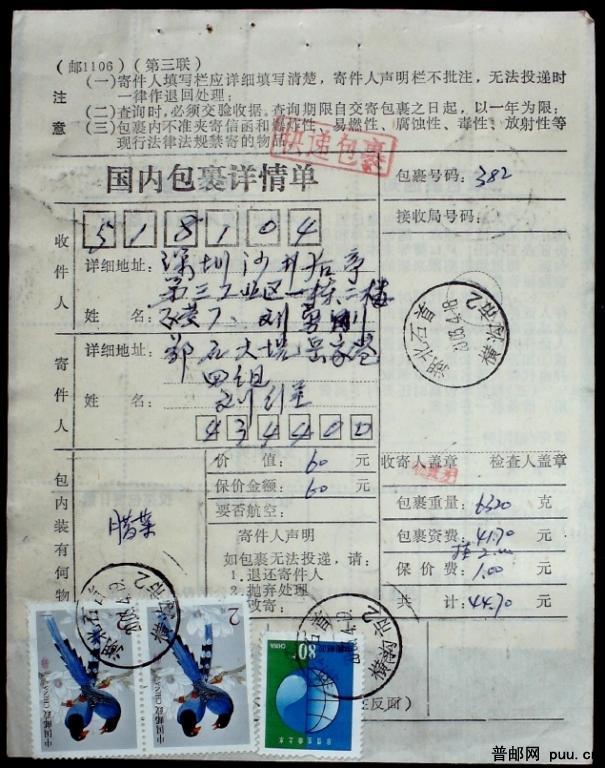 (邮1106)(第三联)
注意
(一)寄件人填写栏应详细填写清楚,寄件人声明栏不批注,无法投递时
一律作退回处理;
(二)查询时,必须交验收据。查询期限自交寄包裹之日起,以一年为限;
(三)包裹内不准夹寄信函和爆炸性、易燃性、腐蚀性、毒性、放射性等
现行法律法规禁寄的物品。
快递包裹
国内包裹详情单
包裹号码:382
接收局号码:
518104
收件人
详细地址:深圳沙井后亭
第三工业区一栋二楼
姓名:
刘
寄件人
详细地址:
四组
姓名:刘
434400
包内装有何物
腊菜
价值:60元
保价金额:60元
要否航空:
寄件人声明
如包裹无法投递,请:
1.退还寄件人
2.抛弃处理
改寄:
收寄人盖章
检查人盖章
包裹重量:6320克
包裹资费:41.70元
挂2.00
保价费:1.00元
共计:44.70元
湖北石首
横沟市2
湖北石首
横沟市2
横沟市2
2
中国邮政
CHINA
中国邮政
CHINA
80分
CHINA
中国邮政
反面)
普邮网 puu.cn